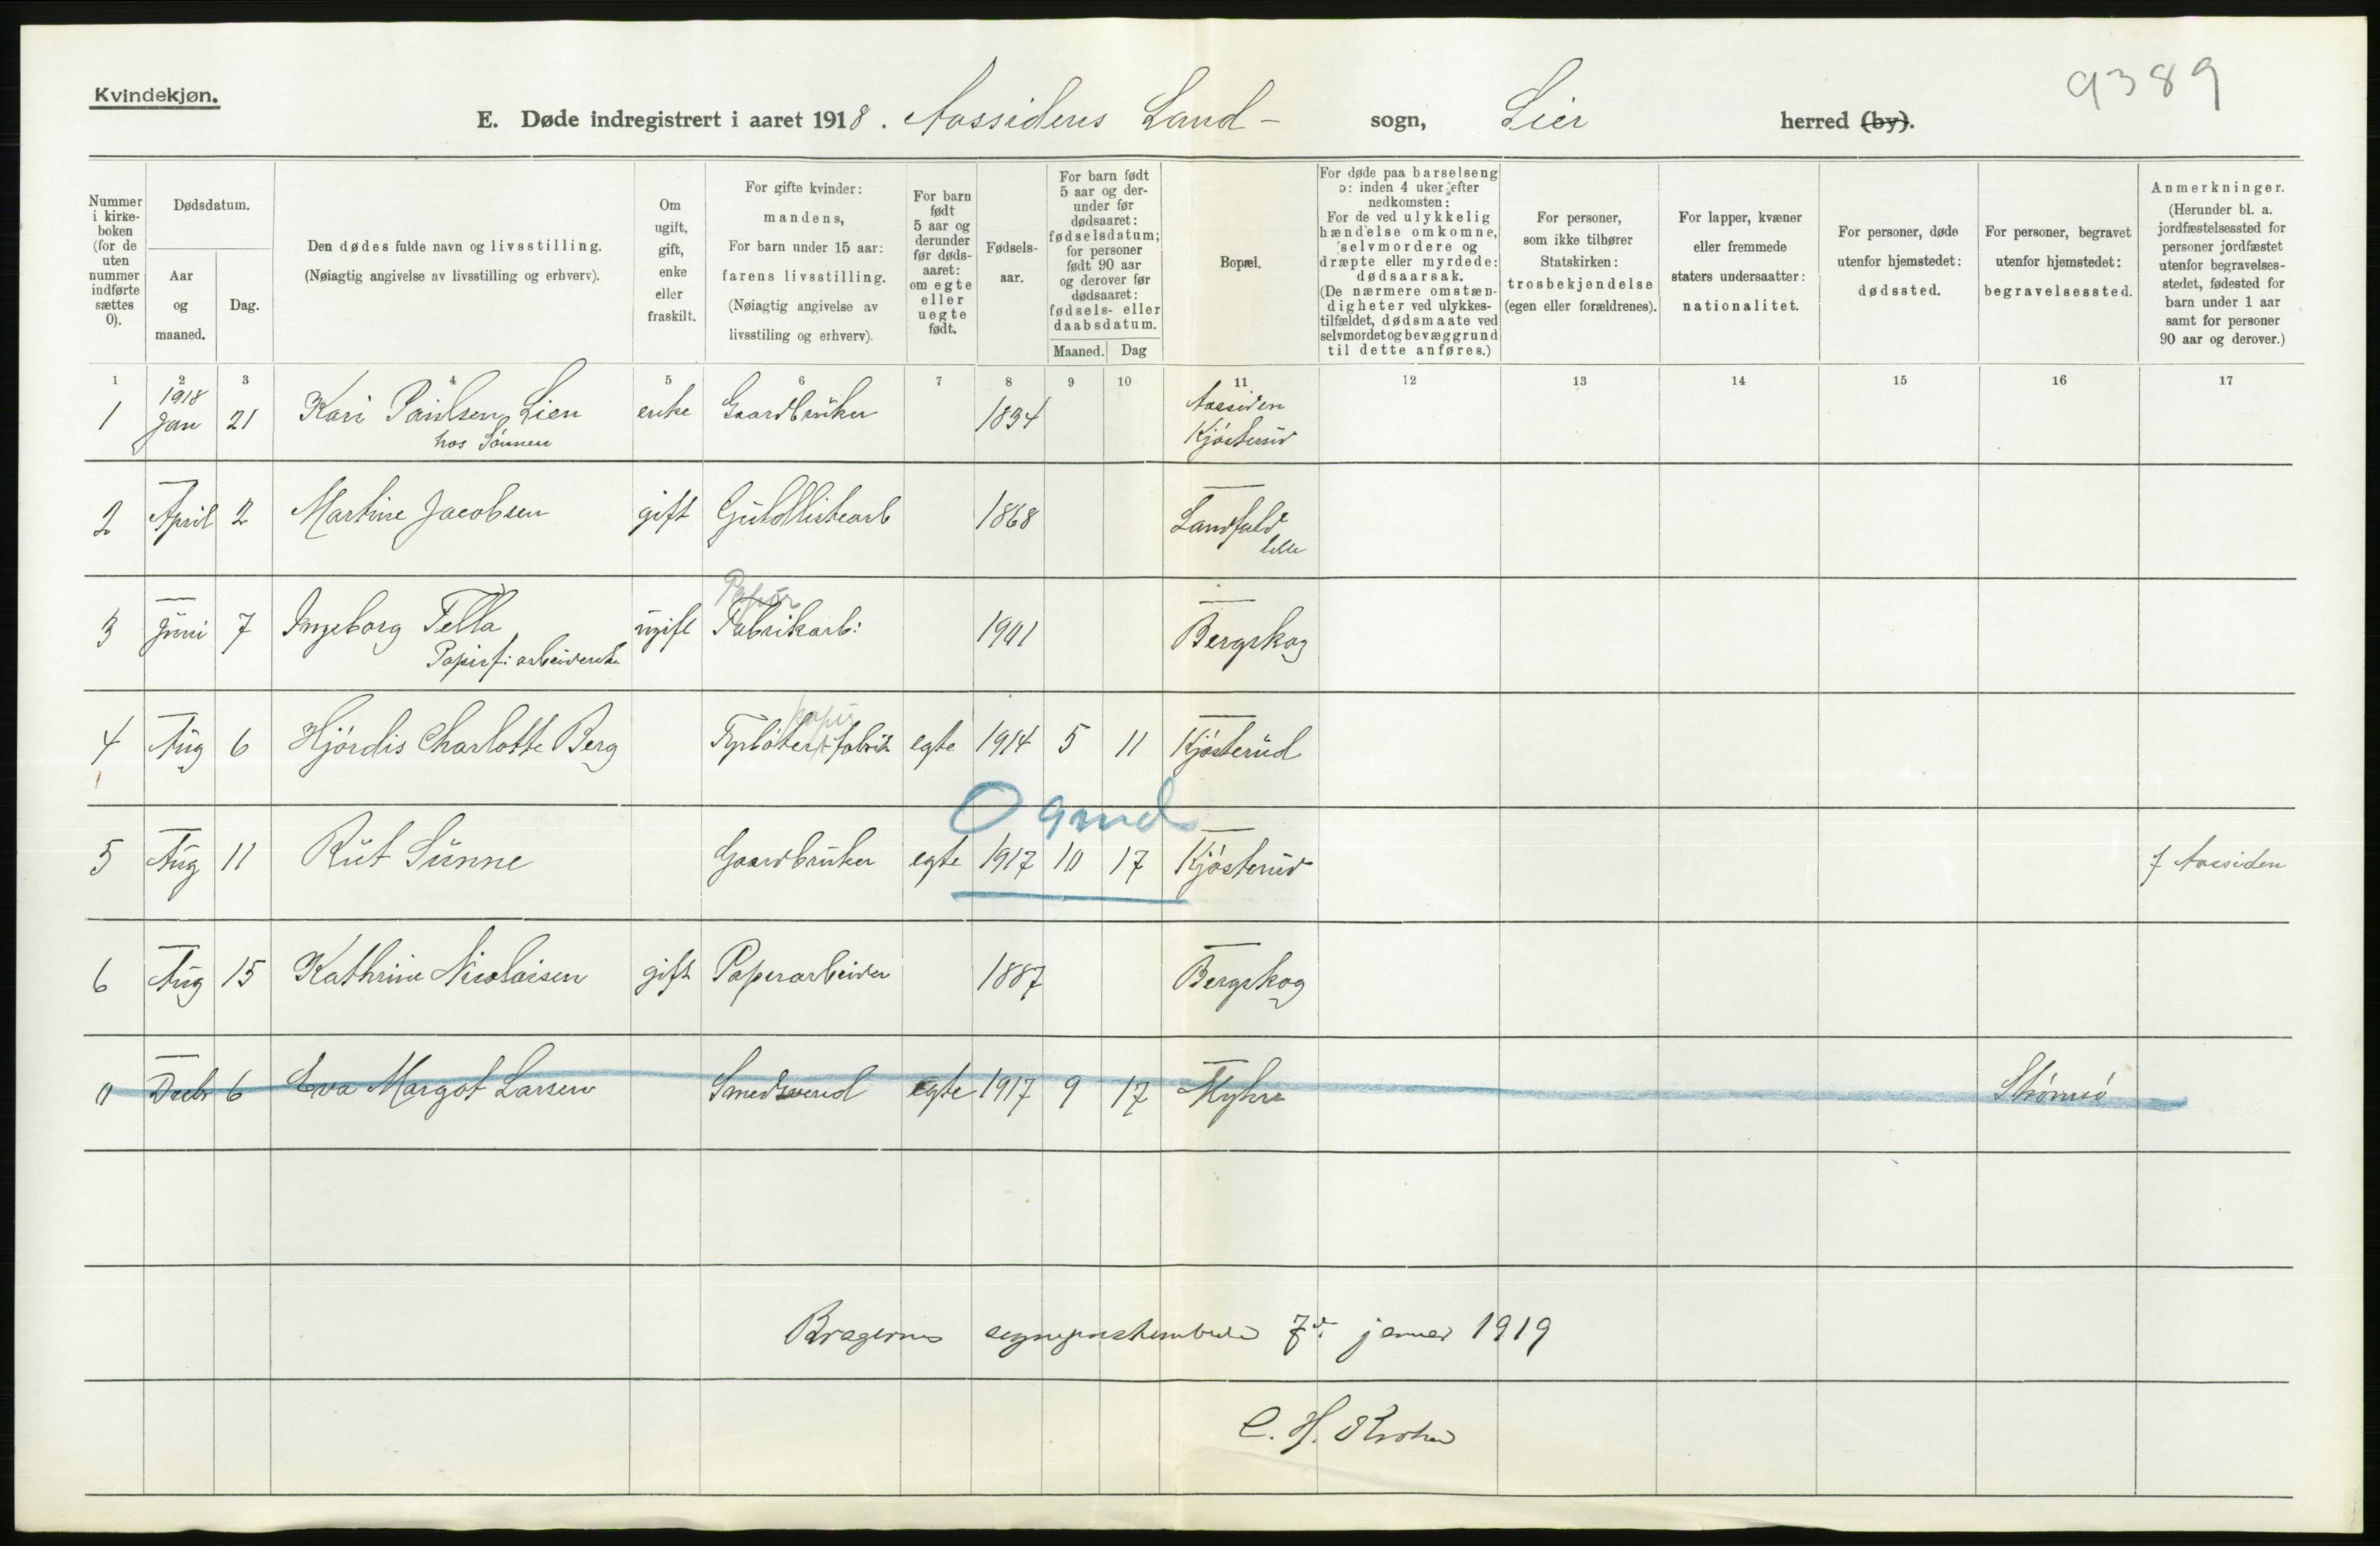 Kvindekjøn.
9389
E. Døde indregistrert i aaret 1918. Aassidens Land- sogn, Lier herred (by).
Nummer i kirkeboken (for de uten nummer indførte sættes 0).
Dødsdatum.
Aar og maaned.
Dag.
Den dødes fulde navn og livsstilling.
(Nøiagtig angivelse av livsstilling og erhverv).
Om ugift, gift, enke eller fraskilt.
For gifte kvinder: mandens,
For barn under 15 aar: farens livsstilling.
(Nøiagtig angivelse av livsstiling og erhverv).
For barn født 5 aar og derunder før dødsaaret: om egte eller uegte født.
Fødselsaar.
For barn født 5 aar og derunder før dødsaaret: fødselsdatum; for personer født 90 aar og derover før dødsaaret: fødsels- eller daabsdatum.
Maaned. Dag
Bopæl.
For døde paa barselseng ɔ: inden 4 uker efter nedkomsten:
For de ved ulykkelig hændelse omkomne, selvmordere og dræpte eller myrdede: dødsaarsak.
(De nærmere omstændigheter ved ulykkestilfældet, dødsmaate ved selvmordet og bevæggrund til dette anføres.)
For personer, som ikke tilhører Statskirken: trosbekjendelse (egen eller forældrenes).
For lapper, kvæner eller fremmede staters undersaatter: nationalitet.
For personer, døde utenfor hjemstedet: dødssted.
For personer, begravet utenfor hjemstedet: begravelsessted.
Anmerkninger.
(Herunder bl. a. jordfæstelsessted for personer jordfæstet utenfor begravelsesstedet, fødested for barn under 1 aar samt for personer 90 aar og derover.)
1 2 3 4 5 6 7 8 9 10 11 12 13 14 15 16 17
1 1918 Jan 21 Kari Paulsen Lien enke Gaardbruker 1834 Aassiden Kjösterud
hos Sönnen
2 — April 2 Martine Jacobsen gift Guldlistearb 1868 — Landfald lille
Papir
3 — Juni 7 Ingeborg Fella ugift Fabrikarb: 1901 — Bergskog
Papirf: arbeiderske
papir
4 — Aug 6 Hjördis Charlotte Berg Fyrböter fabrik egte 1914 5 11 — Kjösterud
0 9 md
5 — Aug 11 Rut Sunne Gaardbruker egte 1917 10 17 — Kjösterud f Aassiden
6 — Aug 15 Kathrine Nicolaisen gift Papirarbeider 1887 — Bergskog
0 — Decbr 6 Eva Margot Larsen Smedsvend egte 1917 9 17 — Myhre Strömsö
Bragernes sogneprestembede 7d. januar 1919
C. H.